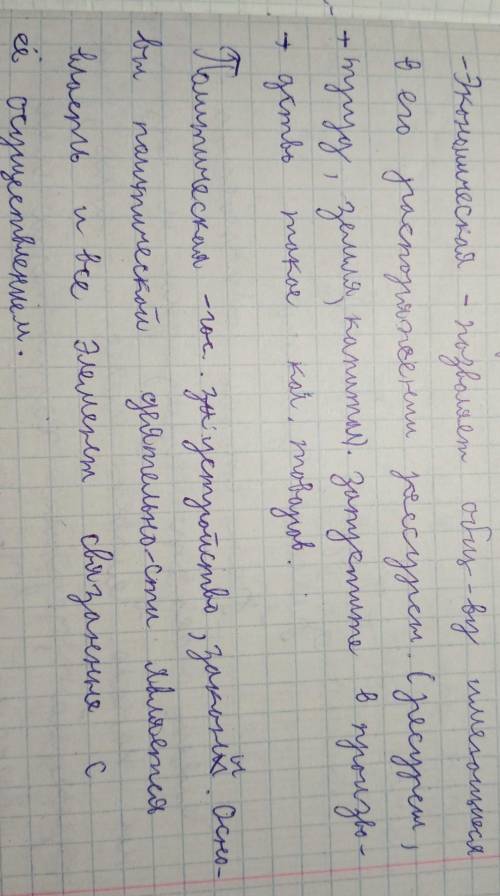 - Экономическая - позволяет общ-ву имеющиеся
в его распоряжении рессурсы. (ресурсы,
+ труд, земля, капитал). Запустите в произво-
+ дство такое кол. товаров.
Политическая - гос. устройство, законы. Осно-
вы политической деятельно-сти является
власть и все элемент связанные с
её осуществлением.